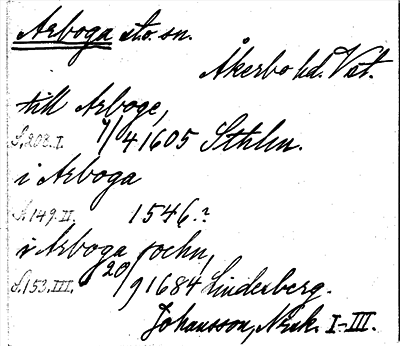 Arboga sto. sn.
Åkerbo hd. Vst.
till Arboge,
S. 203. I. 7/4 1605 Sthlm.
i Arboga
S. 149. II. 1546.?
i Arboga sochn,
S. 153. III. 20/9 1684 Lindesberg.
Johansson, Norik. I-III.